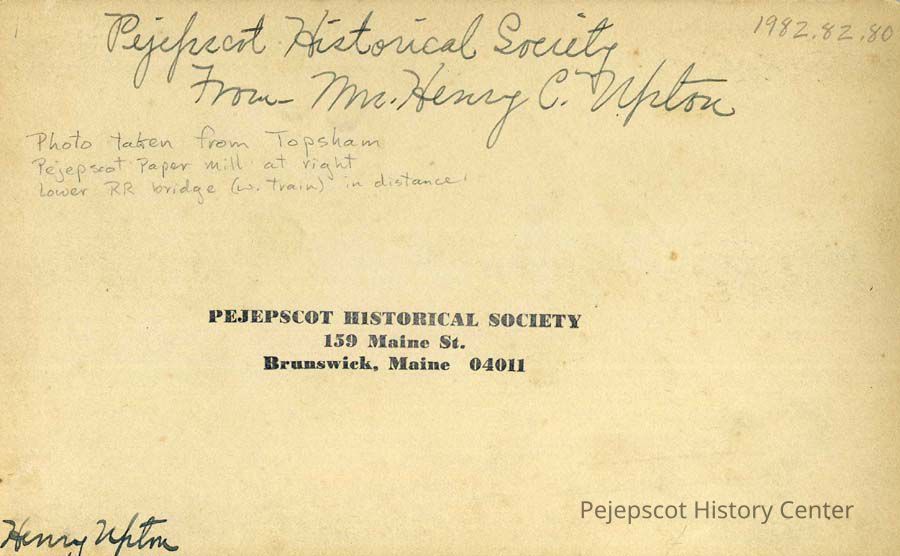 1982.82.80
Pejepscot Historical Society
From - Mr. Henry C. Upton
Photo taken from Topsham
Pejepscot Paper mill at right
Lower RR bridge (w. train) in distance
PEJEPSCOT HISTORICAL SOCIETY
159 Maine St.
Brunswick, Maine 04011
Pejepscot History Center
Henry Upton